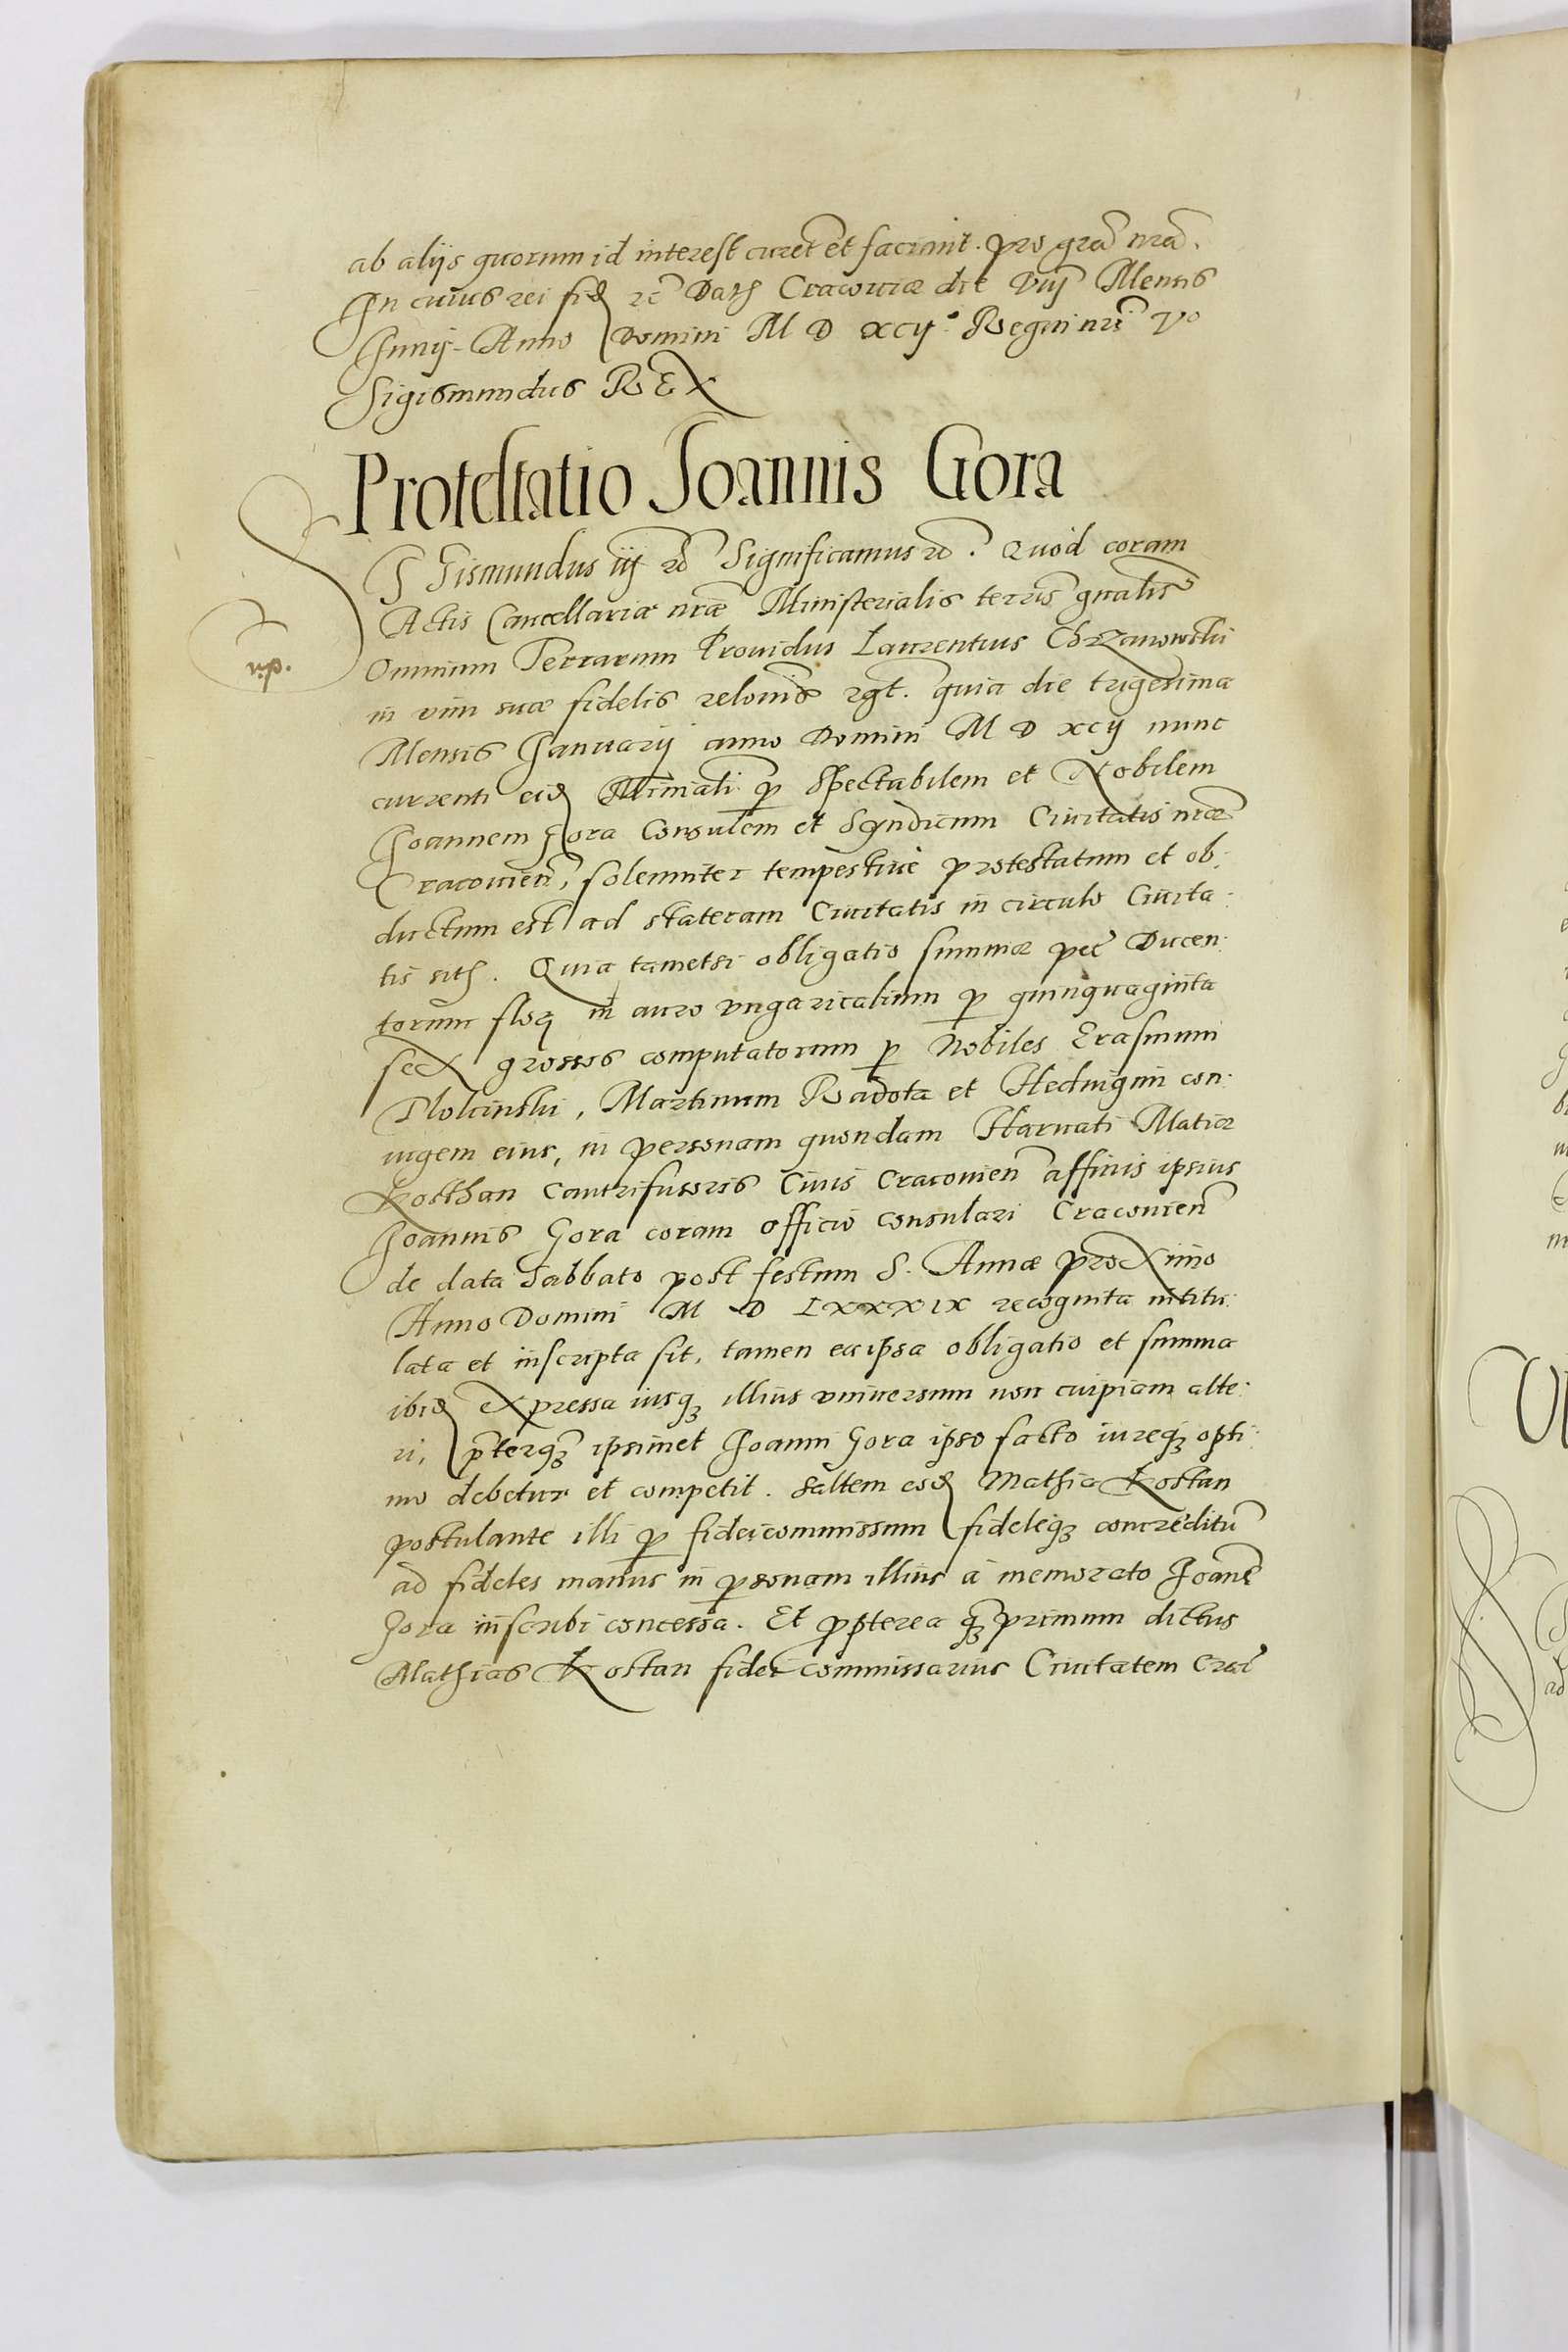 ab alijs quorum id interest curet et faciant. pro gra nra.
In cuius rei fid rc Dath Cracoviæ die Viij Mensis
Junij Anno Domini M D xcij° Regni nri V°
Sigismundus REX
Protestatio Joannis Gora
Sigismundus iij rc Significamus rc. Quod coram
Actis Cancellariæ nræ Ministerialis terris gnalis
Omnium Terrarum Providus Laurentius Chrzanowski
in vim suæ fidelis relonis rgt. quia die trigesima
Mensis Januarij anno Domini M D xcij nunc
currenti eid Miniali p Spectabilem et Nobilem
Joannem Gora Consulem et Syndicum Civitatis nræ
Cracovien, solemniter tempestive protestatum et ob:
ductum est ad stateram Civitatis in circulo Civita:
tis sith. Quia tametsi obligatio summæ pec Ducen:
torum flor in auro vngaricalium p quinquaginta
sex grossos computatorum p Nobiles Erasmum
Plocinski, Martinum Radota et Hedvigim con:
iugem eius, in personam quondam Harvati Matiæ
Kosthan Cantrifusoris Civis Cracovien affinis ipsius
Joannis Gora coram officio Consulari Cracovien
de data Sabbato post festum S. Annæ proximo
Anno Domini M D LXXXIX recognita intitu:
lata et inscripta sit, tamen ea ipsa obligatio et summa
ibid expressa iusq illius vniversum non cuipiam alte:
ri, pterq ipsimet Joanni Gora ipso facto iureq opti:
mo debetur et competit. Saltem eod Mathia Kostan
postulante illi p fideicommissum fideleq concreditu
ad fideles manus in psonam illius à memorato Joane
Gora inscribi concessa. Et ppterea q primum dictus
Mathias Kostan fideicommissarius Civitatem Crac